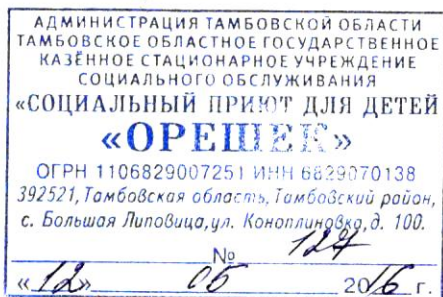 АДМИНИСТРАЦИЯ ТАМБОВСКОЙ ОБЛАСТИ
ТАМБОВСКОЕ ОБЛАСТНОЕ ГОСУДАРСТВЕННОЕ
КАЗЁННОЕ СТАЦИОНАРНОЕ УЧРЕЖДЕНИЕ
СОЦИАЛЬНОГО ОБСЛУЖИВАНИЯ
«СОЦИАЛЬНЫЙ ПРИЮТ ДЛЯ ДЕТЕЙ
«ОРЕШЕК»
ОГРН 1106829007251 ИНН 6829070138
392521, Тамбовская область, Тамбовский район,
с. Большая Липовица, ул. Коноплиновка, д. 100.
№ 127
«12» 05 2016 г.